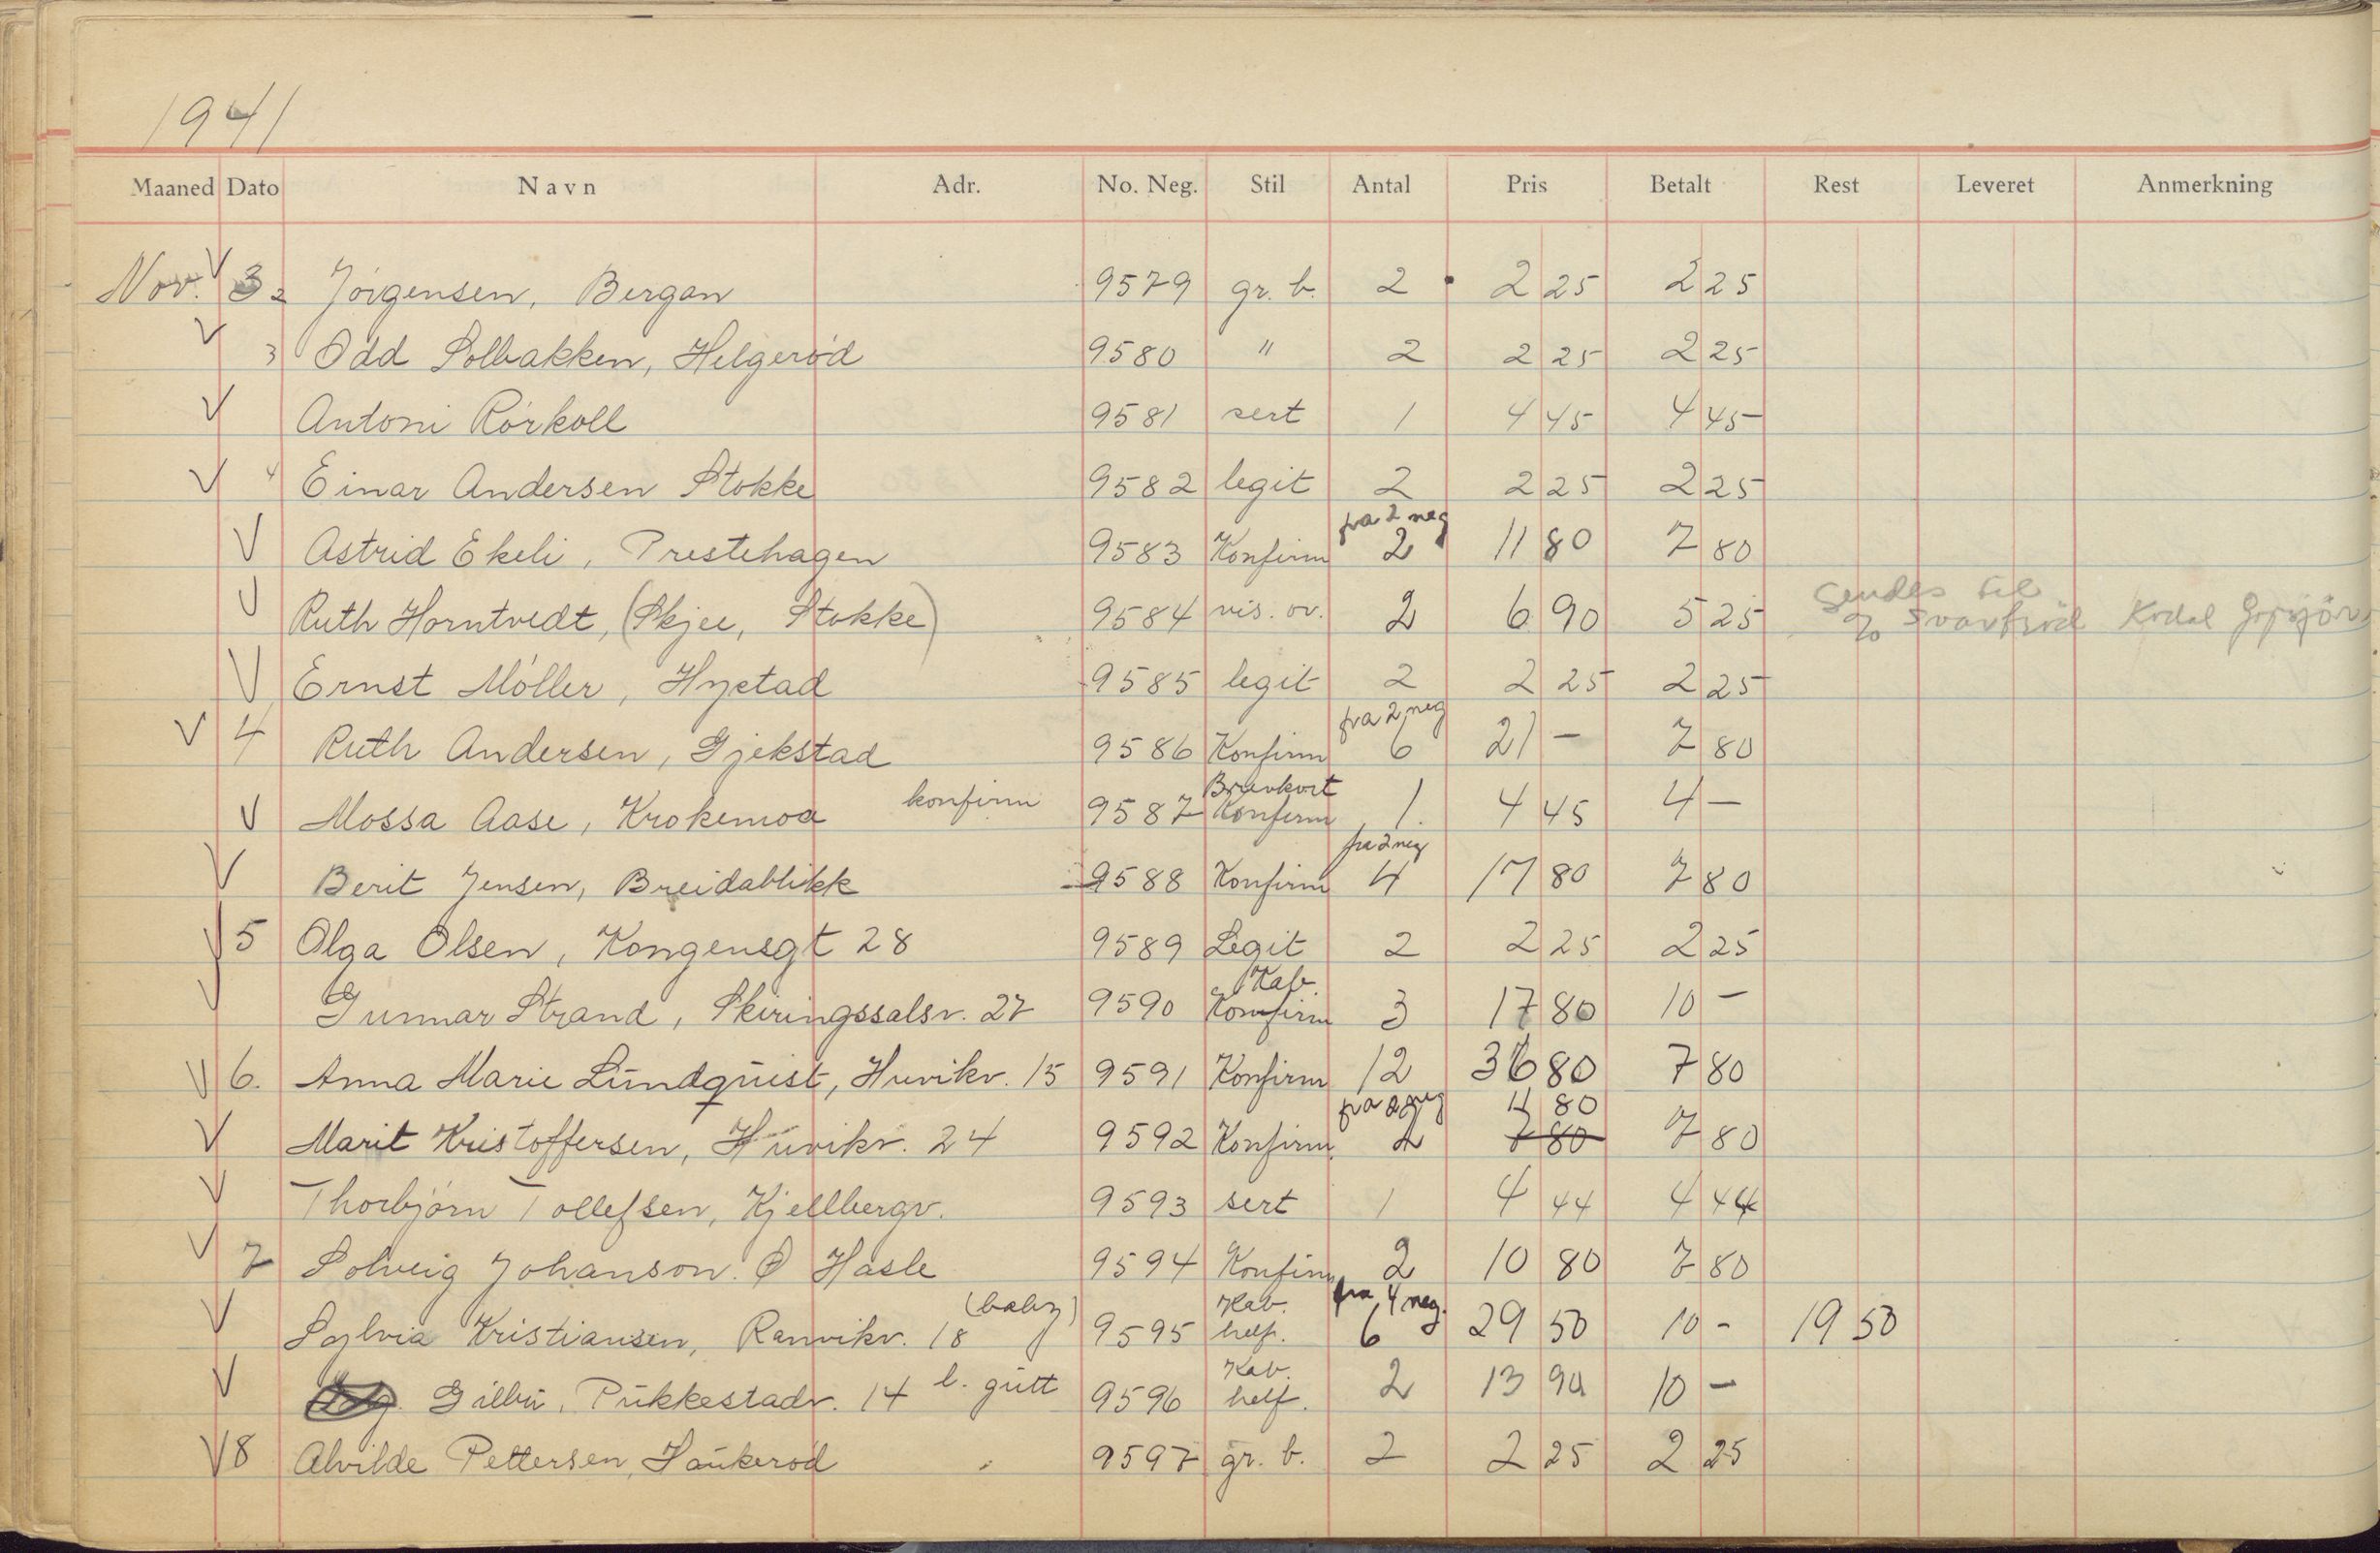 1941
Maaned Dato Navn Adr. No. Neg. Stil Antal Pris Betalt Rest Leveret Anmerkning
Nov. V 3 2 Jörgensen, Bergan 9579 gr. b. 2 2 25 2 25
V 3 Odd Solbakken, Helgeröd 9580 " 2 2 25 2 25
V Antoni Rörkoll 9581 sert 1 4 45 4 45
V 4 Einar Andersen Stokke 9582 legit 2 2 25 2 25
fra 2 neg
V Astrid Ekeli, Prestehagen 9583 Konfirm 2 11 80 7 80
Sendes til
V Ruth Horntvedt, (Skjee, Stokke) 9584 vis. ov. 2 6 90 5 25 c/o Kodal
V Ernst Möller, Hystad 9585 legit 2 2 25 2 25
fra 2 neg
V 4 Ruth Andersen, Gjekstad 9586 Konfirm 6 21 - 7 80
Brevkort
V Mossa Aase, Krokemoa konfirm 9587 Konfirm 1. 4 45 4 -
fra 2 neg
V Berit Jensen, Breidablikk 9588 Konfirm 4 17 80 7 80
V 5 Olga Olsen, Kongensgt 28 9589 Legit 2 2 25 2 25
Kab.
V Gunnar Strand, Skiringssalsv. 27 9590 Konfirm 3 17 80 10 -
V 6. Anna Marie Lundquist, Huvikv. 15 9591 Konfirm 12 36 80 7 80
fra 2 neg 11 80
V Marit Kristoffersen, Huvikv. 24 9592 Konfirm. 2 7 80 7 80
V Thorbjörn Tollefsen, Kjellbergv. 9593 sert 1 4 44 4 44
V 7 Solveig Johanson. Ø Hasle 9594 Konfirm 2 10 80 7 80
(baby) Kab. fra 4 neg.
V Sylvia Kristiansen, Ranvikv. 18 9595 helf. 6 29 50 10 - 19 50
Kab.
V Gilbu, Pukkestadv. 14 l. gutt 9596 helf. 2 13 90 10 -
V 8 Alvilde Pettersen, Haukeröd 9597 gr. b. 2 2 25 2 25